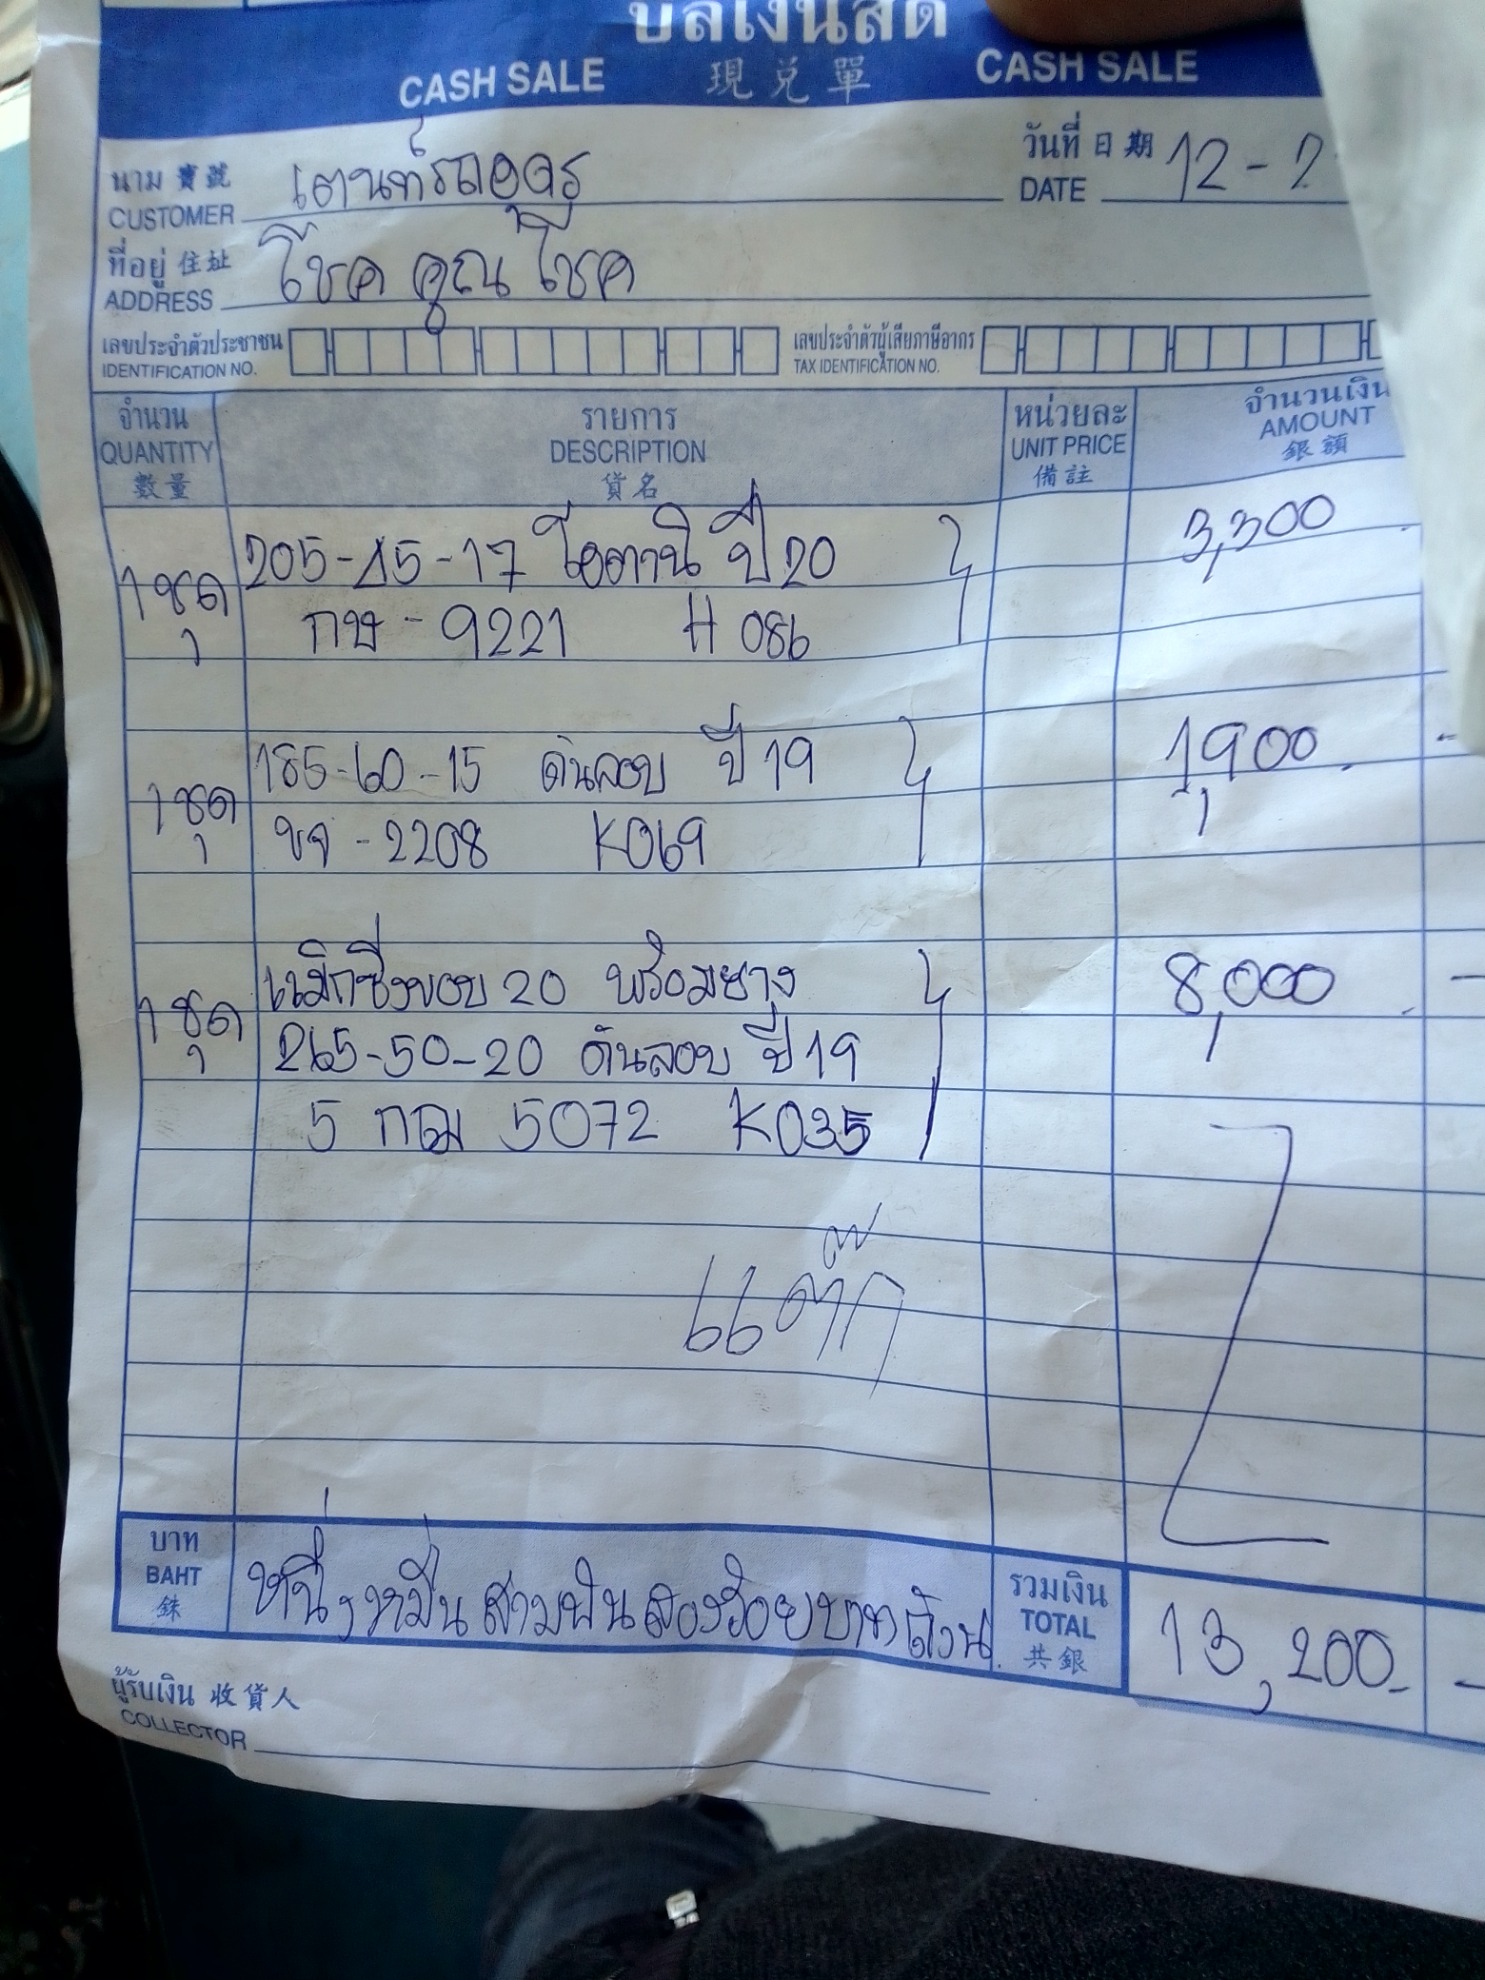 บิลเงินสด
CASH SALE 現兌單 CASH SALE
นาม 寶號 CUSTOMER เตนท์รถอุดร
วันที่ 日期 DATE 12-2
ที่อยู่ 住址 ADDRESS โชค คูณ โชค
เลขประจำตัวประชาชน IDENTIFICATION NO.
เลขประจำตัวผู้เสียภาษีอากร TAX IDENTIFICATION NO.
จำนวน รายการ หน่วยละ จำนวนเงิน
QUANTITY DESCRIPTION UNIT PRICE AMOUNT
數量 貨名 備註 銀額
1 ชุด 205-45-17 โอตานิ ปี 20 3,300
กษ - 9221 H 086
1 ชุด 185-60-15 ดันลอบ ปี 19 1,900
ขจ - 2208 K069
1 ชุด แม็กซิ่งขอบ 20 พร้อมยาง 8,000 -
265-50-20 ดันลอบ ปี 19
5 กฌ 5072 K035
บาท BAHT 銖 หนึ่งหมื่นสามพันสองร้อยบาทถ้วน
รวมเงิน TOTAL 共銀 13,200.-
ผู้รับเงิน 收貨人
COLLECTOR